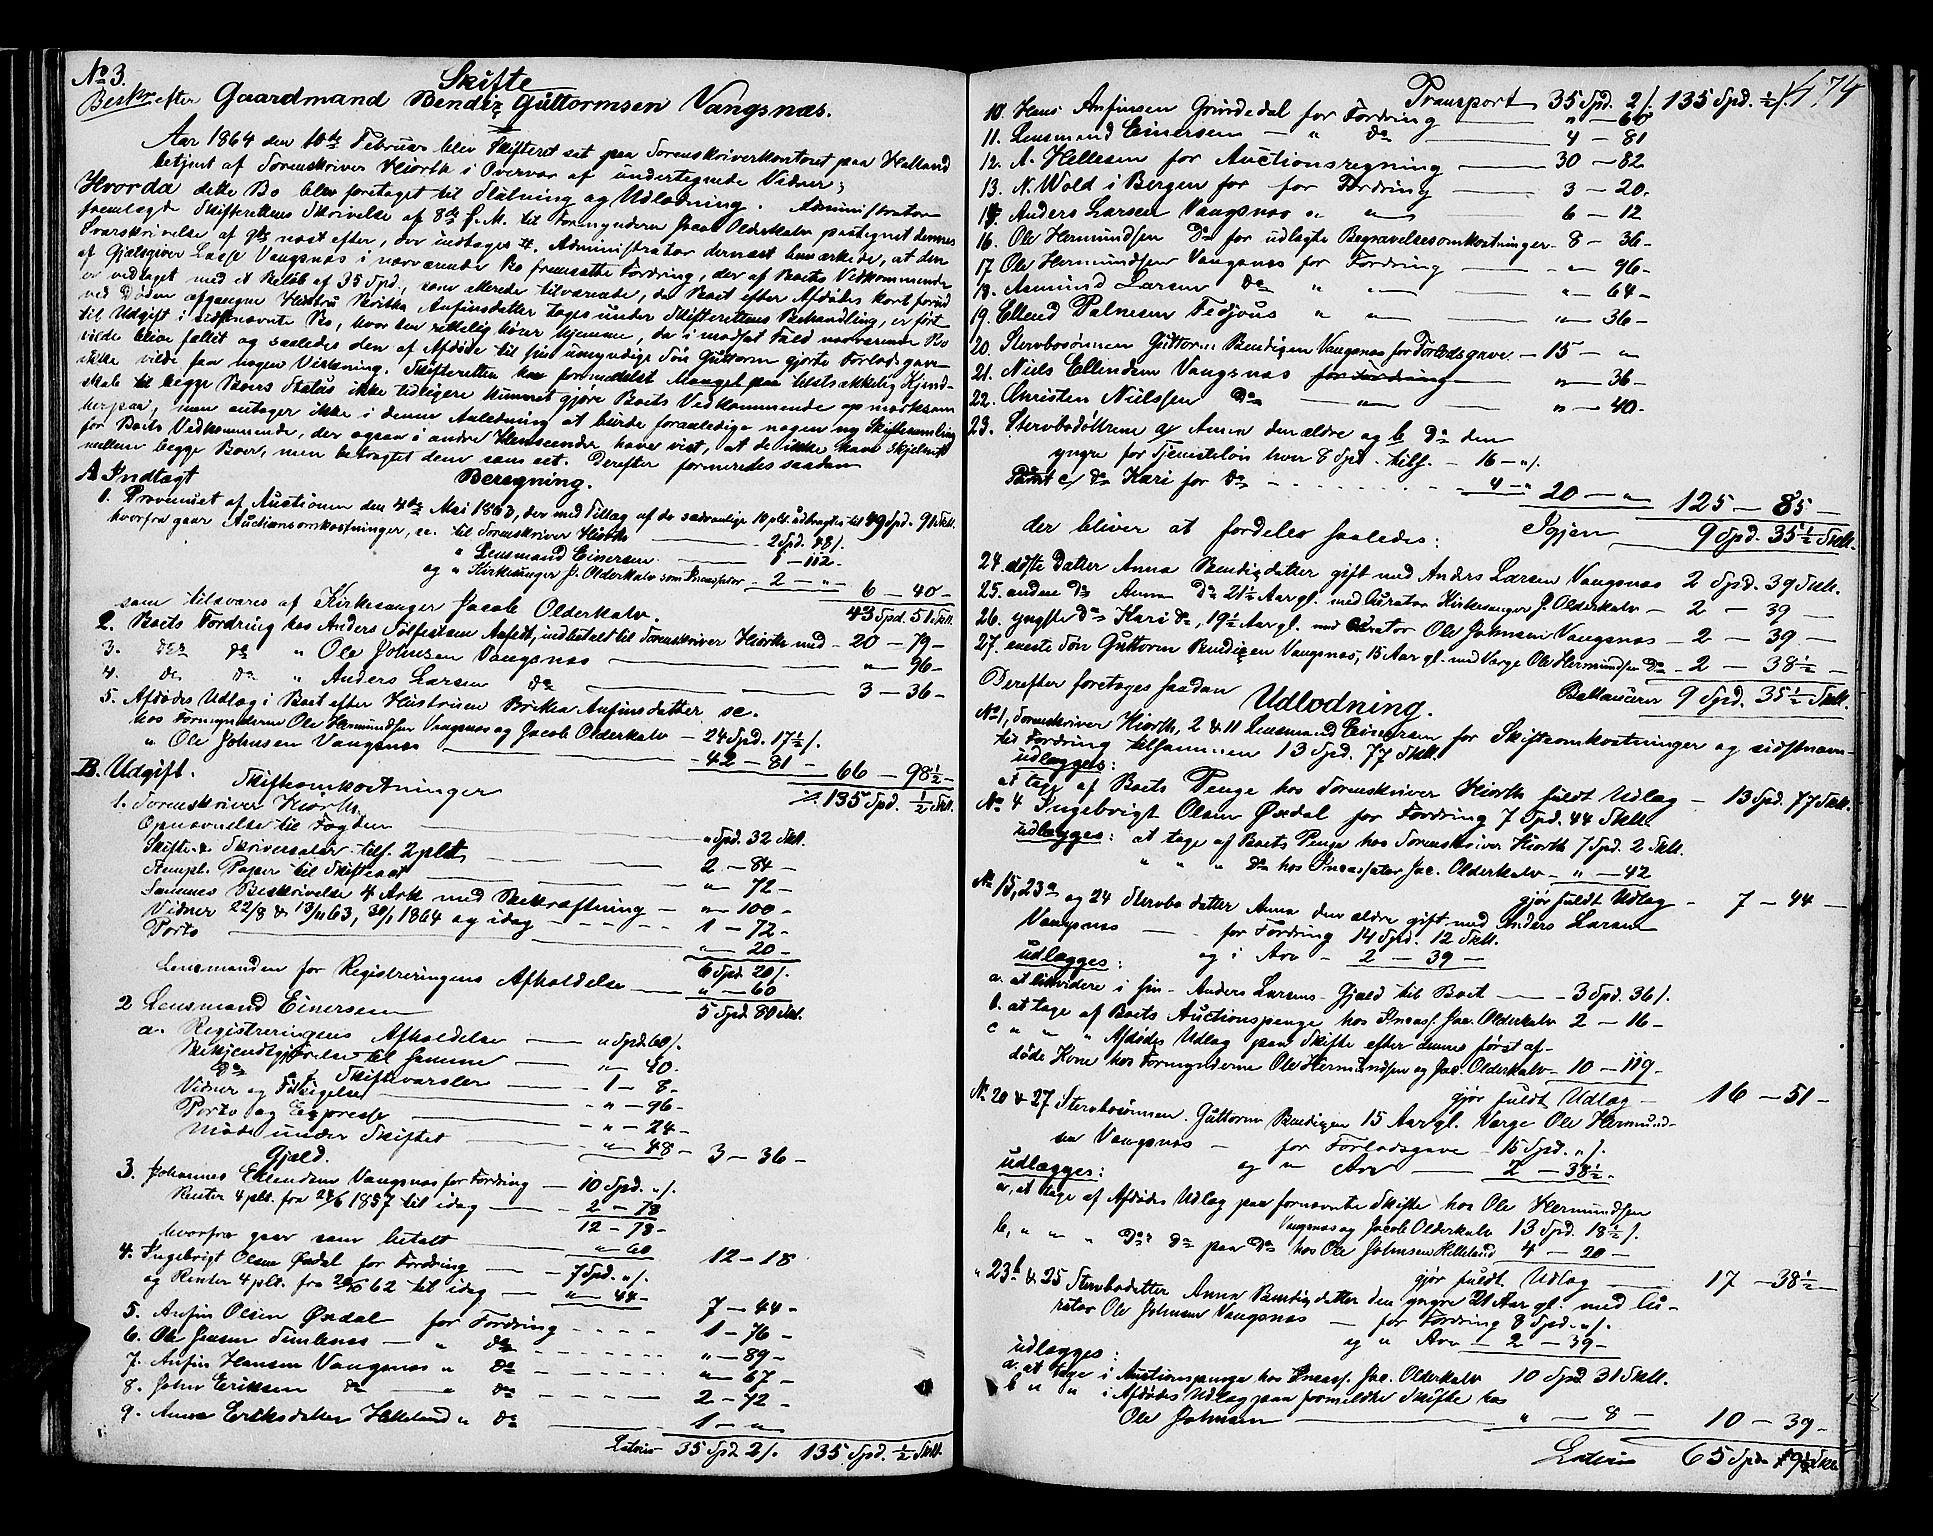 No 3.
Skifte
Beskr. efter Gaardmand Bendix Guttormsen Vangsnæs.
Aar 1864 den 10de Februar blev Skifteret sat paa Sorenskriverkontoret paa Halland
betjent af Sorenskriver Hiorth i Overvær af undertegnede Vidner;
Hvorda dette Bo blev foretaget til Slutning og Udlodning. Administrator
fremlagde Skifterettens Skrivelse af 8de f. M. til Formynderen Jacob Olderkalv paategnet dennes
Svarskrivelse af 9de næst efter, der indtages #. Administrator dernæst bemærkede, at den
af Gjæstgiver Lasse Vangsnæs i nærværende Bo fremsatte Fordring, der af Boets Vedkommende
er vedtaget med et Beløb af 35 Spd., som allerede tilværende, da Boet efter Afdødes kort forud
ved Døden afgangne Hustru Britha Anfinsdatter toges under Skifterettens Behandling, er ført
til Udgift i sidstnævnte Bo, hvor den rettelig hører hjemme, da i modsat Fald nærværende Bo
vilde blive fallit og saaledes den af Afdøde til sin umyndige Søn Guttorm gjorte Forlodsgave
ikke vilde faa nogen Virkning. Skifteretten har formedelst Mangel paa tilstrækkelig Kjend-
skab til begge Boers Status ikke tidligere kunnet gjøre Boets Vedkommende opmærksom
herpaa, men antager ikke i denne Anledning at burde foranledige nogen ny Skiftesamling
for Boets Vedkommende, der ogsaa i andre Henseender have vist, at de ikke have skjelnet
mellem begge Boer, men betragtet dem som eet. Derefter formeredes saadan
A Indtægt Beregning.
1. Provenuet af Auctionen den 4de Mai 1863, der med Tillæg af de sædvanlige 10 pCt. udbragtes til 49 Spd. 91 Skill.
hvorfra gaar Auctionsomkostninger, sc. til Sorenskriver Hiorth 2 Spd. 48 /.
" Lensmand Einersen 1 - 112 -
og " Kirkesanger J. Olderkalv som Incassator - 2 - " - 6 - 40 -
som tilsvares af Kirkesanger Jacob Olderkalv. 43 Spd. 51 Skill.
2. Boets Fordring hos Anders Tolfesen Aafedt, indbetalt til Sorenskriver Hiorth med - 20 - 79 -
3. des do " Ole Johnsen Vangsnæs " - 96 -
4. des do " Anders Larsen do 3 - 36 -
5. Afdødes Udlæg i Boet efter Hustruen Britha Anfinsdatter sc.
hos Formynderne Ole Hermundsen Vangsnæs og Jacob Olderkalv - 24 Spd. 17½ /.
" Ole Johnsen Vangsnæs - 42 - 81 - 66 - 98½ -
B. Udgift. ./. 135 Spd. ½ Skill.
Skifteomkostninger
1. Sorenskriver Hiorth.
Opnævnelse til Fogden " Spd. 32 Skill.
Skifte- & Skriversalær tils. 2 pCt. 2 - 84 -
Stempl. Papir til Skifteact " - 72 -
Sammes Beskrivelse 4 Ark med Bekræftning " - 100 -
Vidner 22/8 & 13/11 63, 30/1 1864 og idag 1 - 72 -
Porto " - 20 -
6 Spd. 20 /.
Lensmanden for Registreringens Afholdelse " - 60
2 Lensmand Einersen 5 Spd. 80 Skill.
a. Registreringens Afholdelse " Spd. 60 /.
Bekjendtgjørelse til samme " - 40 -
do " Skiftevarsler 1 - 8 -
Vidner og Tilsigelse " - 96 -
Porto og Expresse " - 24 -
Møde under Skiftet " - 48 - 3 - 36 -
Gjæld.
3. Johannes Ellendsen Vangsnæs for Fordring - 10 Spd. " /.
Renter 4 pCt. fra 24/6 1857 til idag 2 - 78
12 - 78 -
hvorfra gaar som betalt " - 60 12 - 18
4. Ingebrigt Olsen Øxdal for Fordring 7 Spd. " /.
og Renter 4 pCt. fra 62 til idag " - 44 - 7 - 44 -
5. Anfin Olsen Øxdal for Fordring 1 - 76 -
6. Ole Jensen Simlenæs " do " - 89 -
7. Anfin Hansen Vangsnæs " do " - 67 -
8. John Eriksen do " do 2 - 72 -
9. Anna Eriksdatter Helleland " do 1 - " -
Lateris 35 Spd. 2 /. 135 Spd. ½ Skill.
474
Transport 35 Spd. 2 /. 135 Spd. ½ /.
10. Hans Anfinsen Grindedal for Fordring " - 60
11. Lensmand Einersen " do 4 - 81
12. A. Hellesen for Auctionsregning 30 - 82
13. N. Wold i Bergen for for Fordring 3 - 20.
15. Anders Larsen Vangsnæs " " 6 - 12
16. Ole Hermundsen do for udlagte Begravelsesomkostninger - 8 - 36 -
17. Ole Hermundsen Vangsnæs for Fordring " - 96 -
18. Asmund Larsen do " " " - 64 -
19. Ellend Palmesen Fedjous " " " - 36 -
20. Stervbosønnen Guttorm Bendixen Vangsnæs for Forlodsgave - 15 - "
21. Niels Ellendsen Vangsnæs for Fordring " - 36 -
22. Christen Nielssen do " " - 40.
23. Stervbodøttrene a/ Anna den ældre og b do den
yngre for Tjenesteløn hver 8 Spd. tils. - 16 - " /.
samt c/ do Kari for do 4 - " 20 - " 125 - 85 -
der bliver at fordeles saaledes: Igjen 9 Spd. 35½ Skill.
24. ældste Datter Anna Bendixdatter gift med Anders Larsen Vangsnæs 2 Spd. 39 Skill.
25. anden do Anna do 21½ Aar gl. med Curator Kirkesanger J. Olderkalv - 2 - 39 -
26. yngste do Kari do, 19½ Aar gl. med Curator Ole Johnsen Vangsnæs - 2 - 39 -
27. eneste Søn Guttorm Bendixen Vangsnæs, 15 Aar gl. med Værge Ole Hermundsen do - 2 - 38½ -
Derefter foretoges saadan Ballancerer 9 Spd. 35½ Skill.
Udlodning.
No 1, Sorenskriver Hiorth, 2 & 11 Lensmand Einersen for Skifteomkostninger og sidstnævn-
tes Fordring tilsammen 13 Spd. 77 Skill.
udlægges:
at tage af Boets Penge hos Sorenskriver Hiorth fuldt Udlæg - 13 Spd. 77 Skill.
No 4 Ingebrigt Olsen Øxdal for Fordring 7 Spd. 44 Skill.
udlægges: at tage af Boets Penge hos Sorenskriver Hiorth 7 Spd. 2 Skill.
" " " do hos Incassator Jac. Olderkalv - " - 42
gjør fuldt Udlæg - 7 - 44 -
No 15, 23a og 24 Stervbodatter Anna den ældre gift med Anders Larsen
Vangsnæs for Fordring 14 Spd. 12 Skill.
udlægges: og i Arv - 2 - 39 -
a. at likvidere i sin - Anders Larsens - Gjæld til Boet - 3 Spd. 36 /.
b. at tage af Boets Auctionspenge hos Incass. Jac. Olderkalv 2 - 16 -
c " " " Afdødes Udlæg paa Skifte efter dennes først af-
døde Kone hos Formynderne Ole Hermundsen og Jac. Olderkalv - 10 - 119 -
gjør fuldt Udlæg - 16 - 51 -
No 20 & 27 Stervbosønnen Guttorm Bendixen 15 Aar gl. Værge Ole Hermund-
sen Vangsnæs - for Forlodsgave - 15 Spd. " /.
udlægges: og " Arv 2 - 38½ -
a, at tage af Afdødes Udlæg paa fornævnte Skifte hos Ole Hermundsen
Vangsnæs og Jacob Olderkalv 13 Spd. 18½ /.
b, " " " do do paa do hos Ole Johnsen Helleland 4 - 20 -
gjør fuldt Udlæg 17 - 38½ -
" 23b & 25 Stervbodatter Anna Bendixdatter den yngre 21 Aar gl. med Cu-
rator Ole Johnsen Vangsnæs - for Fordring 8 Spd. " /.
og " Arv - 2 - 39 -
udlægges:
a. at tage i Auctionspenge hos Incass. Jac. Olderkalv 10 Spd 31 Skill.
b " " i Afdødes Udlæg paa formeldte Skifte hos
Ole Johnsen " - 8 - 10 - 39 -
Lateris 65 Spd. 9½ Skill.